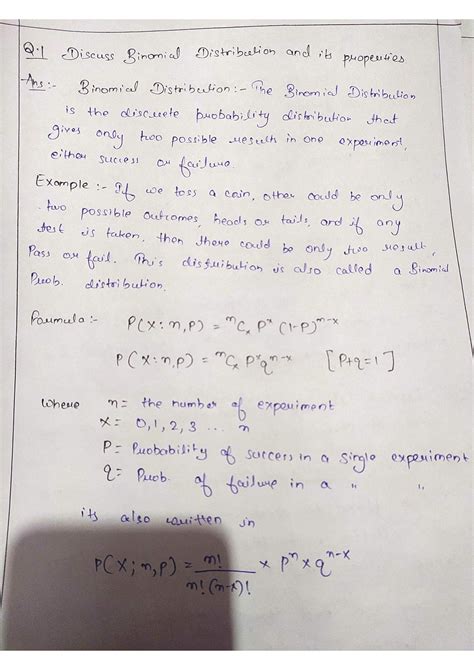 Q.1 Discuss Binomial Distribution and its properties
Ans:- Binomial Distribution:- The Binomial Distribution
is the discrete probability distribution that
gives only two possible results in one experiment,
either success or failure.
Example :- If we toss a coin, other could be only
two possible outcomes, heads or tails, and if any
test is taken, then there could be only two result,
Pass or fail. This distribution is also called a Binomial
Prob. distribution.
Formula:- P(X:n,P) = ⁿCₓ Pˣ (1-P)ⁿ⁻ˣ
P(X:n,P) = ⁿCₓ Pˣqⁿ⁻ˣ [P+q=1]
where n= the number of experiment
X= 0,1,2,3 ... n
P= Probability of success in a single experiment
q= Prob. of failure in a " "
its also written in
P(X;n,p) = n!/n!(n-x)! × pⁿ × qⁿ⁻ˣ